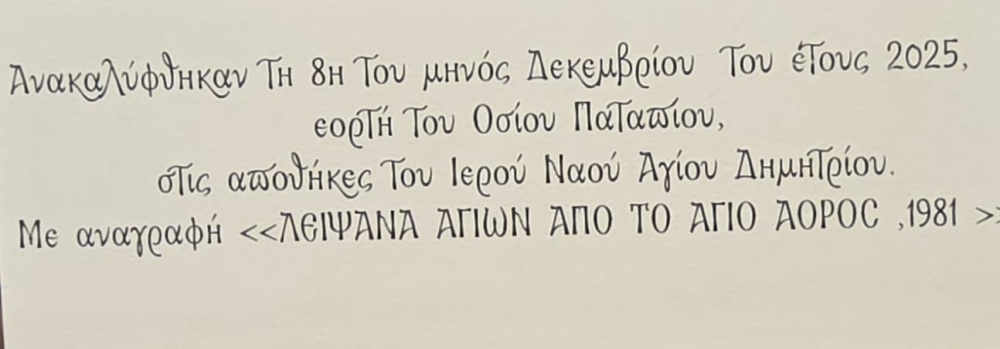 Ανακαλύφθηκαν Τη 8η Του μηνός Δεκεμβρίου Του έΤους 2025,
εορΤή Του Οσίου ΠαΤαπίου,
στις αποθήκες Του Ιερού Ναού Αγίου ΔημηΤρίου.
Με αναγραφή <<ΛΕΙΨΑΝΑ ΑΓΙΩΝ ΑΠΟ ΤΟ ΑΓΙΟ ΑΟΡΟC ,1981 >>